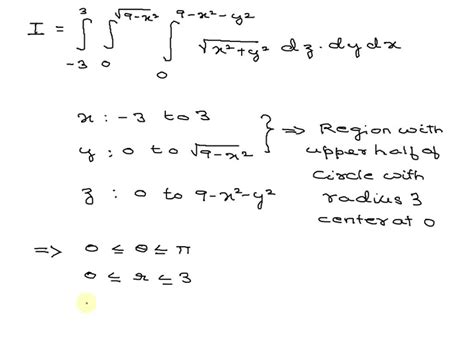 I = ∫_{-3}^{3} ∫_{0}^{√(9-x²)} ∫_{0}^{9-x²-y²} √(x²+y²) dz.dydx
x : -3 to 3
y : 0 to √(9-x²)
z : 0 to 9-x²-y²
} => Region with
upper half of
circle with
radius 3
center at 0
=> 0 ≤ θ ≤ π
0 ≤ r ≤ 3